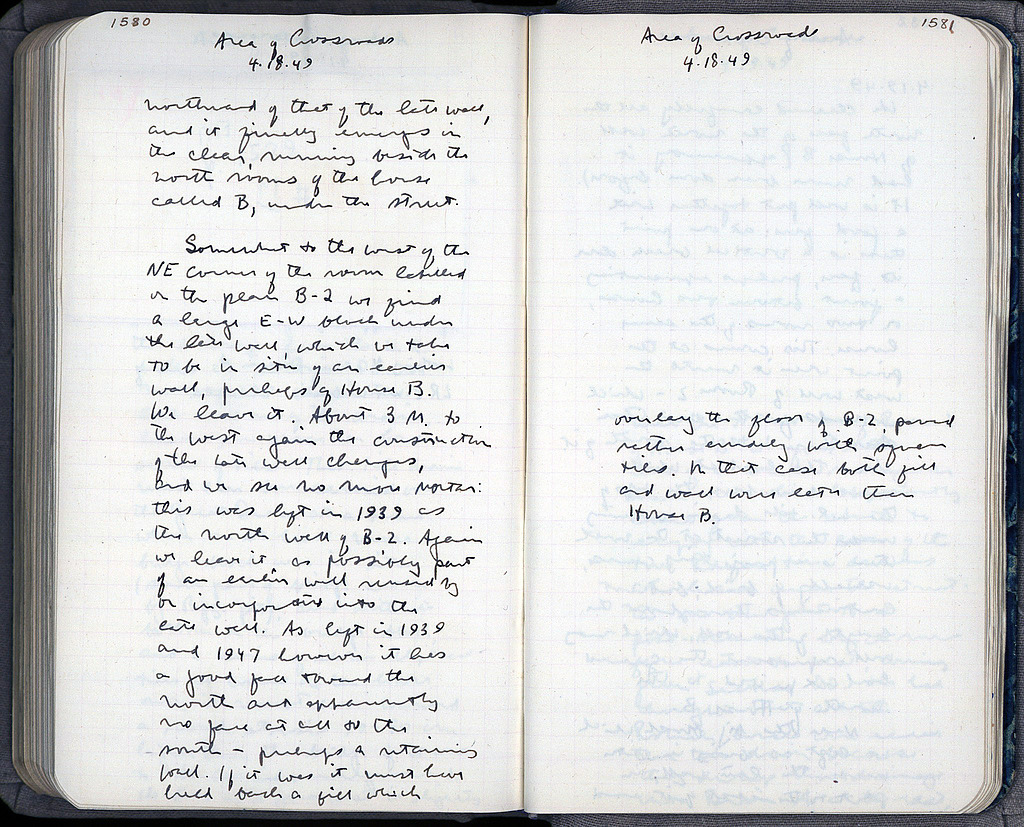 1580
Area of Crossroads
4.18.49
northward of that of the late wall,
and it finally emerges in
the clear, running beside the
north rooms of the house
called B, under the street.
Somewhat to the west of the
NE corner of the room labelled
on the plan B-2 we find
a large E-W block under
the late wall, which we take
to be in situ of an earlier
wall, perhaps of House B.
We leave it. About 3 M. to
the west again the construction
of the late wall changes,
and we see no more mortar:
this was left in 1939 as
the north wall of B-2. Again
we leave it, as possibly part
of an earlier wall reused by
or incorporated into the
late wall. As left in 1939
and 1947 however it has
a good face toward the
north and apparently
no face at all to the
south – perhaps a retaining
wall. If it was it must have
held back a fill which
1581
Area of Crossroads
4.18.49
overlay the floor of B-2, paved
rather crudely with square
tiles. In that case both fill
and wall were later than
House B.